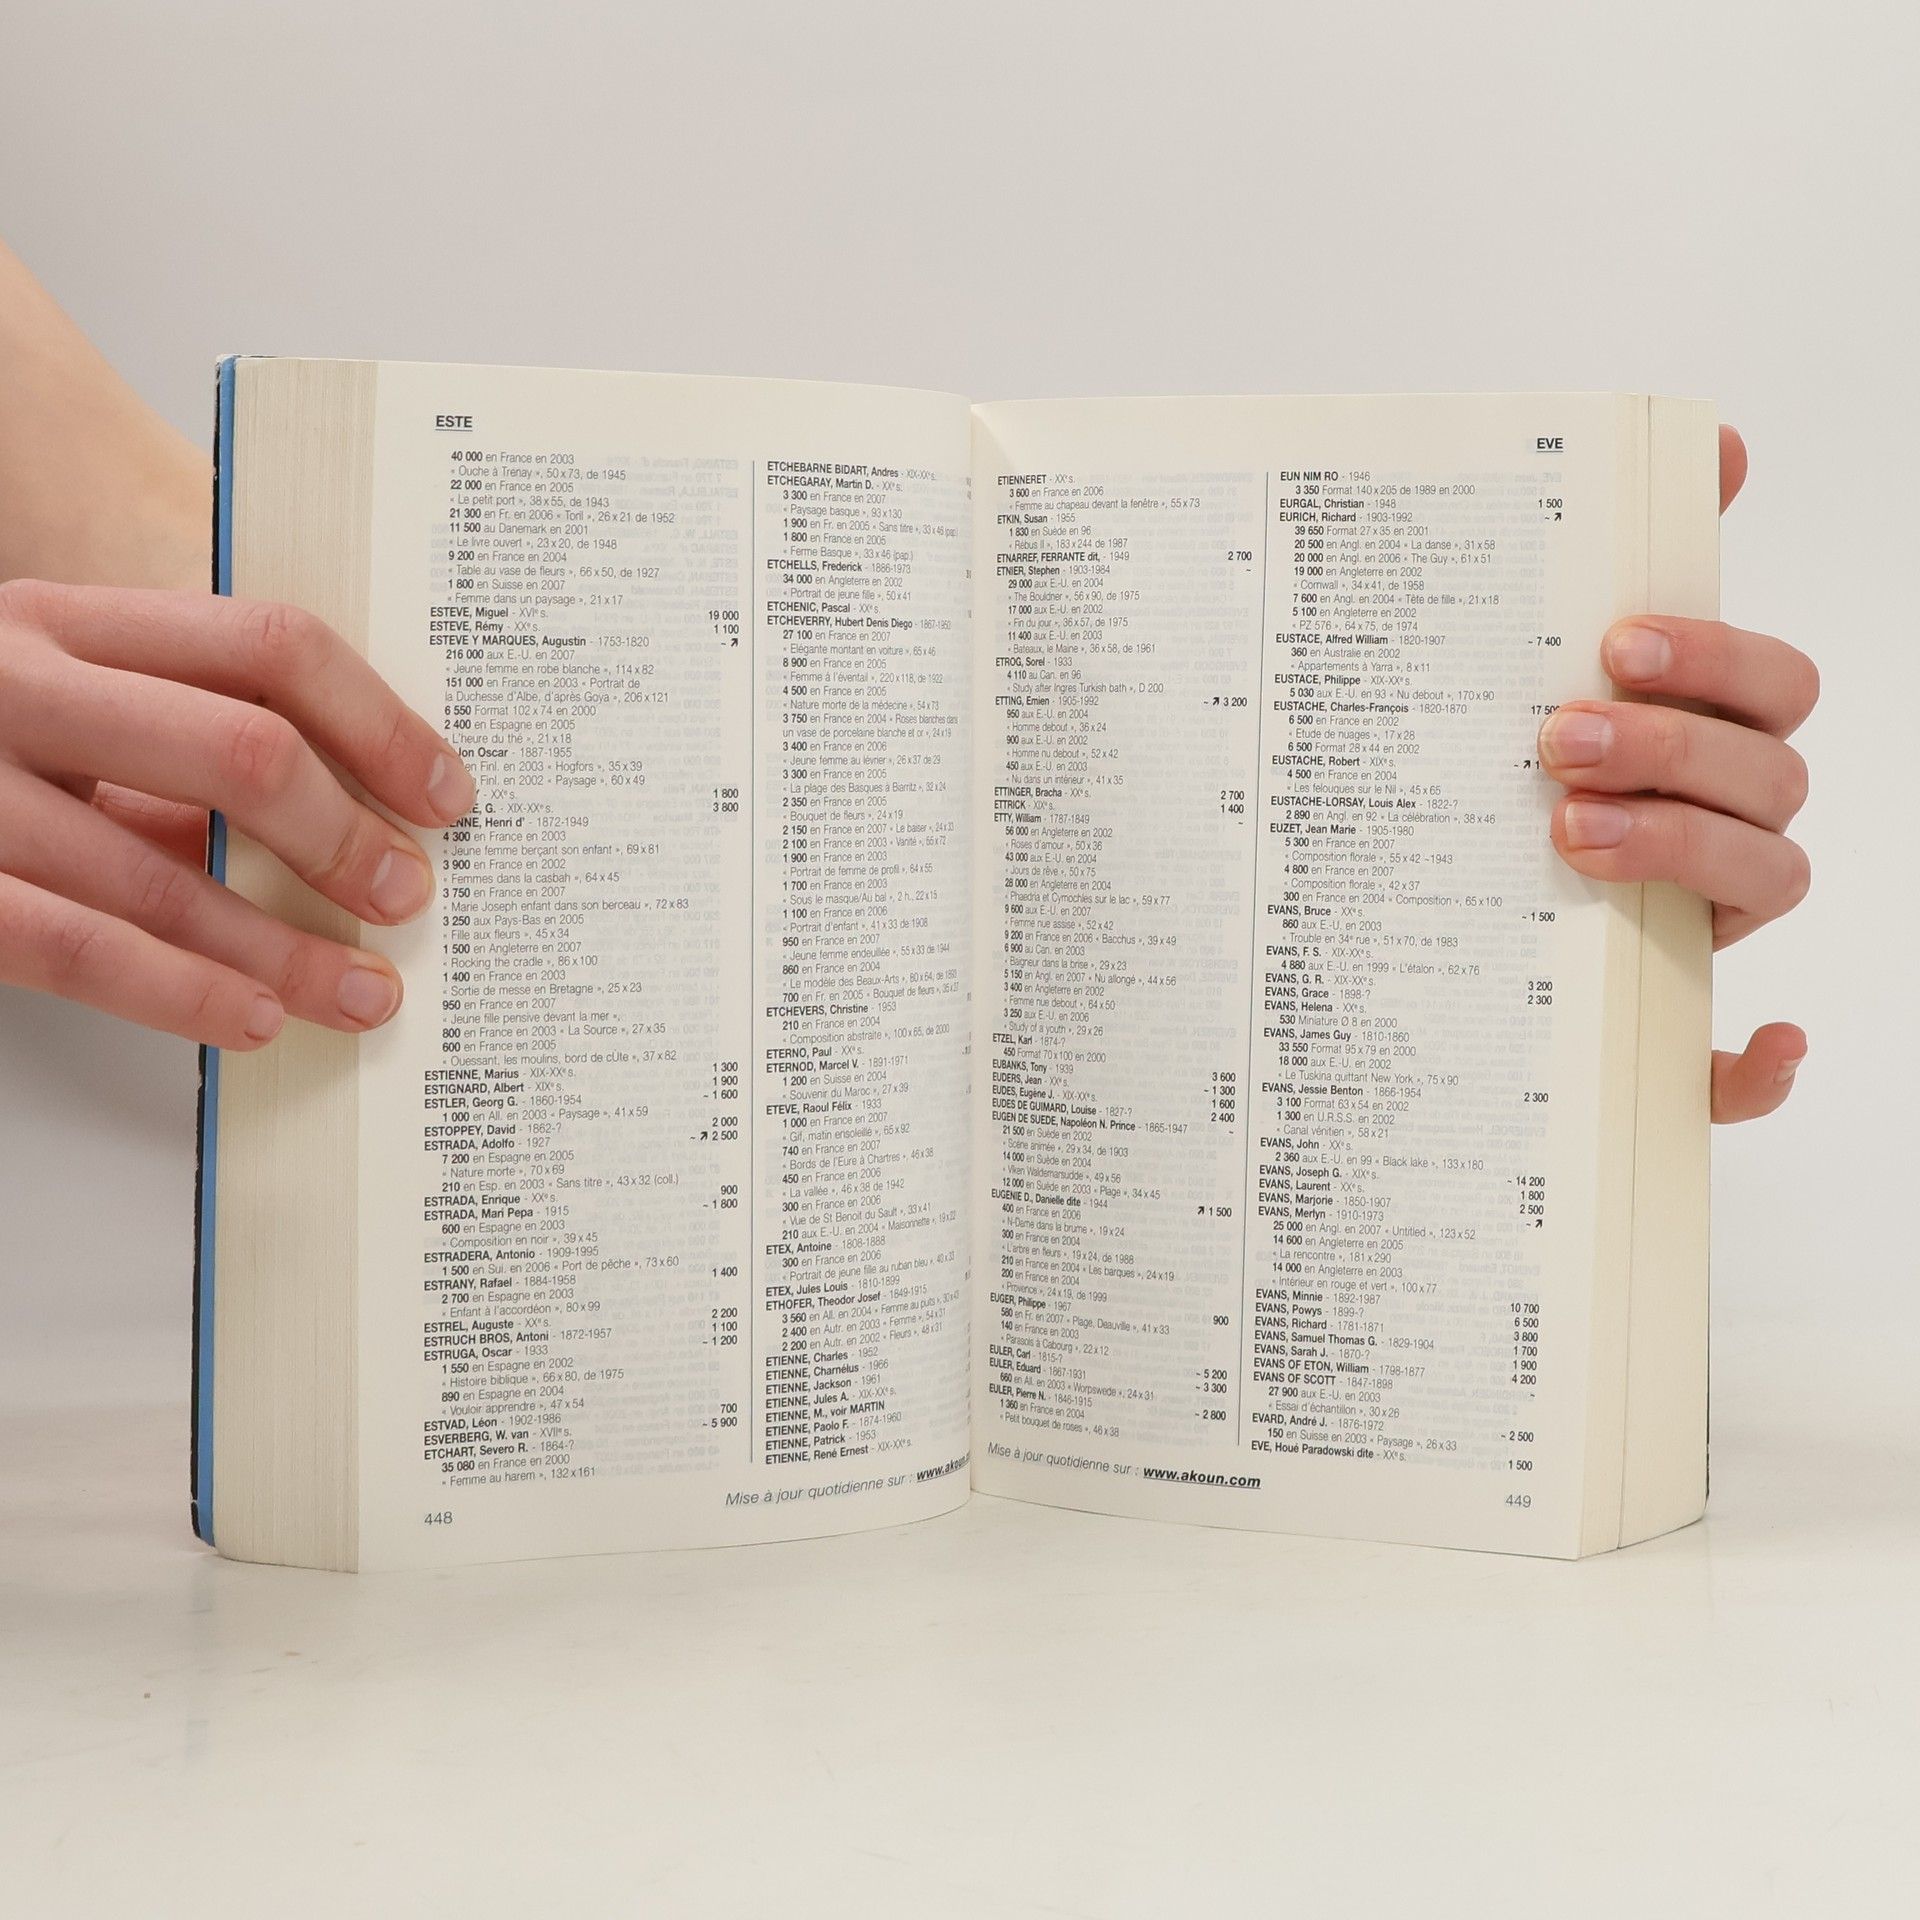 ESTE
40 000 en France en 2003
« Ouche à Trenay », 50 x 73, de 1945
22 000 en France en 2005
« Le petit port », 38 x 55, de 1943
21 300 en Fr. en 2006 « Toril », 26 x 21 de 1952
11 500 au Danemark en 2001
« Le livre ouvert », 23 x 20, de 1948
9 200 en France en 2004
« Table au vase de fleurs », 66 x 50, de 1927
1 800 en Suisse en 2007
« Femme dans un paysage », 21 x 17
ESTEVE, Miguel - XVIe s. 19 000
ESTEVE, Rémy - XXe s. 1 100
ESTEVE Y MARQUES, Augustin - 1753-1820 ~ ↗
216 000 aux E.-U. en 2007
« Jeune femme en robe blanche », 114 x 82
151 000 en France en 2003 « Portrait de
la Duchesse d'Albe, d'après Goya », 206 x 121
6 550 Format 102 x 74 en 2000
2 400 en Espagne en 2005
« L'heure du thé », 21 x 18
Jon Oscar - 1887-1955
en Finl. en 2003 « Hogfors », 35 x 39
Finl. en 2002 « Paysage », 60 x 49
- XXe s. 1 800
G. - XIX-XXe s. 3 800
ENNE, Henri d' - 1872-1949
4 300 en France en 2003
« Jeune femme berçant son enfant », 69 x 81
3 900 en France en 2002
« Femmes dans la casbah », 64 x 45
3 750 en France en 2007
« Marie Joseph enfant dans son berceau », 72 x 83
3 250 aux Pays-Bas en 2005
« Fille aux fleurs », 45 x 34
1 500 en Angleterre en 2007
« Rocking the cradle », 86 x 100
1 400 en France en 2003
« Sortie de messe en Bretagne », 25 x 23
950 en France en 2007
« Jeune fille pensive devant la mer »,
800 en France en 2003 « La Source », 27 x 35
600 en France en 2005
« Ouessant, les moulins, bord de cÙte », 37 x 82
ESTIENNE, Marius - XIX-XXe s. 1 300
ESTIGNARD, Albert - XIXe s. 1 900
ESTLER, Georg G. - 1860-1954 ~ 1 600
1 000 en All. en 2003 « Paysage », 41 x 59
ESTOPPEY, David - 1862-? 2 000
ESTRADA, Adolfo - 1927 ~ ↗ 2 500
7 200 en Espagne en 2005
« Nature morte », 70 x 69
210 en Esp. en 2003 « Sans titre », 43 x 32 (coll.)
ESTRADA, Enrique - XXe s. 900
ESTRADA, Mari Pepa - 1915 ~ 1 800
600 en Espagne en 2003
« Composition en noir », 39 x 45
ESTRADERA, Antonio - 1909-1995
1 500 en Sui. en 2006 « Port de pêche », 73 x 60
ESTRANY, Rafael - 1884-1958 1 400
2 700 en Espagne en 2003
« Enfant à l'accordéon », 80 x 99
ESTREL, Auguste - XXe s. 2 200
ESTRUCH BROS, Antoni - 1872-1957 1 100
ESTRUGA, Oscar - 1933 ~ 1 200
1 550 en Espagne en 2002
« Histoire biblique », 66 x 80, de 1975
890 en Espagne en 2004
« Vouloir apprendre », 47 x 54
ESTVAD, Léon - 1902-1986
ESVERBERG, W. van - XVIIe s. 700
ETCHART, Severo R. - 1864-? ~ 5 900
35 080 en France en 2000
« Femme au harem », 132 x 161
448
ETCHEBARNE BIDART, Andres - XIX-XXe s.
ETCHEGARAY, Martin D. - XXe s.
3 300 en France en 2007
« Paysage basque », 93 x 130
1 900 en Fr. en 2005 « Sans titre », 33 x 46 (pap)
1 800 en France en 2005
« Ferme Basque », 33 x 46 (pap.)
ETCHELLS, Frederick - 1886-1973
34 000 en Angleterre en 2002
« Portrait de jeune fille », 50 x 41
ETCHENIC, Pascal - XXe s.
ETCHEVERRY, Hubert Denis Diego - 1867-1950
27 100 en France en 2007
« Elégante montant en voiture », 65 x 46
8 900 en France en 2005
« Femme à l'éventail », 220 x 118, de 1922
4 500 en France en 2005
« Nature morte de la médecine », 54 x 73
3 750 en France en 2004 « Roses blanches dans
un vase de porcelaine blanche et or », 24 x 19
3 400 en France en 2006
« Jeune femme au lévrier », 26 x 37 de 29
3 300 en France en 2005
« La plage des Basques à Biarritz », 32 x 24
2 350 en France en 2005
« Bouquet de fleurs », 24 x 19
2 150 en France en 2007 « Le baiser », 24 x 33
2 100 en France en 2003 « Vanité », 55 x 72
1 900 en France en 2003
« Portrait de femme de profil », 64 x 55
1 700 en France en 2003
« Sous le masque/Au bal », 2 h., 22 x 15
1 100 en France en 2006
« Portrait d'enfant », 41 x 33 de 1908
950 en France en 2007
« Jeune femme endeuillée », 55 x 33 de 1944
860 en France en 2004
« Le modèle des Beaux-Arts », 80 x 64, de 1893
700 en Fr. en 2005 « Bouquet de fleurs », 35 x 27
ETCHEVERS, Christine - 1953
210 en France en 2004
« Composition abstraite », 100 x 65, de 2000
ETERNO, Paul - XXe s.
ETERNOD, Marcel V. - 1891-1971
1 200 en Suisse en 2004
« Souvenir du Maroc », 27 x 39
ETEVE, Raoul Félix - 1933
1 000 en France en 2007
« Gif, matin ensoleillé », 65 x 92
740 en France en 2007
« Bords de l'Eure à Chartres », 46 x 38
450 en France en 2006
« La vallée », 46 x 38 de 1942
300 en France en 2006
« Vue de St Benoit du Sault », 33 x 41
210 aux E.-U. en 2004 « Maisonnette », 19 x 22
ETEX, Antoine - 1808-1888
300 en France en 2006
« Portrait de jeune fille au ruban bleu », 40 x 33
ETEX, Jules Louis - 1810-1899
ETHOFER, Theodor Josef - 1849-1915
3 560 en All. en 2004 « Femme au puits », 30 x 43
2 400 en Autr. en 2003 « Femme », 54 x 31
2 200 en Autr. en 2002 « Fleurs », 48 x 31
ETIENNE, Charles - 1952
ETIENNE, Charnélus - 1966
ETIENNE, Jackson - 1961
ETIENNE, Jules A. - XIX-XXe s.
ETIENNE, M., voir MARTIN
ETIENNE, Paolo F. - 1874-1960
ETIENNE, Patrick - 1953
ETIENNE, René Ernest - XIX-XXe s.
Mise à jour quotidienne sur : www.akoun.
EVE
ETIENNERET - XXe s.
3 600 en France en 2006
« Femme au chapeau devant la fenêtre », 55 x 73
ETKIN, Susan - 1955
1 830 en Suède en 96
« Rébus II », 183 x 244 de 1987
ETNARREF, FERRANTE dit, - 1949 2 700
ETNIER, Stephen - 1903-1984 ~
29 000 aux E.-U. en 2004
« The Bouldner », 56 x 90, de 1975
17 000 aux E.-U. en 2002
« Fin du jour », 36 x 57, de 1975
11 400 aux E.-U. en 2003
« Bateaux, le Maine », 36 x 58, de 1961
ETROG, Sorel - 1933
4 110 au Can. en 96
« Study after Ingres Turkish bath », D 200
ETTING, Emien - 1905-1992 ~ ↗ 3 200
950 aux E.-U. en 2004
« Homme debout », 36 x 24
900 aux E.-U. en 2002
« Homme nu debout », 52 x 42
450 aux E.-U. en 2003
« Nu dans un intérieur », 41 x 35
ETTINGER, Bracha - XXe s. 2 700
ETTRICK - XIXe s. 1 400
ETTY, William - 1787-1849 ~
56 000 en Angleterre en 2002
« Roses d'amour », 50 x 36
43 000 aux E.-U. en 2004
« Jours de rêve », 50 x 75
28 000 en Angleterre en 2004
« Phaedria et Cymochles sur le lac », 59 x 77
9 600 aux E.-U. en 2007
« Femme nue assise », 52 x 42
9 200 en France en 2006 « Bacchus », 39 x 49
6 900 au Can. en 2003
« Baigneur dans la brise », 29 x 23
5 150 en Angl. en 2007 « Nu allongé », 44 x 56
3 400 en Angleterre en 2002
« Femme nue debout », 64 x 50
3 250 aux E.-U. en 2006
« Study of a youth », 29 x 26
ETZEL, Karl - 1874-?
450 Format 70 x 100 en 2000
EUBANKS, Tony - 1939
EUDERS, Jean - XXe s. 3 600
EUDES, Eugène J. - XIX-XXe s. ~ 1 300
EUDES DE GUIMARD, Louise - 1827-? 1 600
EUGEN DE SUEDE, Napoléon N. Prince - 1865-1947 2 400
21 500 en Suède en 2002 ~
« Scène animée », 29 x 34, de 1903
14 000 en Suède en 2004
« Vken Waldemarsudde », 49 x 56
12 000 en Suède en 2003 « Plage », 34 x 45
EUGENIE D., Danielle dite - 1944
400 en France en 2006 ↗ 1 500
« N-Dame dans la brume », 19 x 24
300 en France en 2004
« L'arbre en fleurs », 19 x 24, de 1988
210 en France en 2004 « Les barques », 24 x 19
200 en France en 2004
« Provence », 24 x 19, de 1999
EUGER, Philippe - 1967
580 en Fr. en 2007 « Plage, Deauville », 41 x 33 900
140 en France en 2003
« Parasols à Cabourg », 22 x 12
EULER, Carl - 1815-?
EULER, Eduard - 1867-1931 ~ 5 200
660 en All. en 2003 « Worpswede », 24 x 31 ~ 3 300
EULER, Pierre N. - 1846-1915
1 360 en France en 2004 ~ 2 800
« Petit bouquet de roses », 46 x 38
EUN NIM RO - 1946
3 350 Format 140 x 205 de 1989 en 2000
EURGAL, Christian - 1948 1 500
EURICH, Richard - 1903-1992 ~ ↗
39 650 Format 27 x 35 en 2001
20 500 en Angl. en 2004 « La danse », 31 x 58
20 000 en Angl. en 2006 « The Guy », 61 x 51
19 000 en Angleterre en 2002
« Cornwall », 34 x 41, de 1958
7 600 en Angl. en 2004 « Tête de fille », 21 x 18
5 100 en Angleterre en 2002
« PZ 576 », 64 x 75, de 1974
EUSTACE, Alfred William - 1820-1907 ~ 7 400
360 en Australie en 2002
« Appartements à Yarra », 8 x 11
EUSTACE, Philippe - XIX-XXe s.
5 030 aux E.-U. en 93 « Nu debout », 170 x 90
EUSTACHE, Charles-François - 1820-1870 17 500
6 500 en France en 2002
« Etude de nuages », 17 x 28
6 500 Format 28 x 44 en 2002
EUSTACHE, Robert - XIXe s. ~ ↗ 1
4 500 en France en 2004
« Les felouques sur le Nil », 45 x 65
EUSTACHE-LORSAY, Louis Alex - 1822-?
2 890 en Angl. en 92 « La célébration », 38 x 46
EUZET, Jean Marie - 1905-1980
5 300 en France en 2007
« Composition florale », 55 x 42 ~1943
4 800 en France en 2007
« Composition florale », 42 x 37
300 en France en 2004 « Composition », 65 x 100
EVANS, Bruce - XXe s. ~ 1 500
860 aux E.-U. en 2003
« Trouble en 34e rue », 51 x 70, de 1983
EVANS, F. S. - XIX-XXe s.
4 880 aux E.-U. en 1999 « L'étalon », 62 x 76
EVANS, G. R. - XIX-XXe s. 3 200
EVANS, Grace - 1898-? 2 300
EVANS, Helena - XXe s.
530 Miniature Ø 8 en 2000
EVANS, James Guy - 1810-1860
33 550 Format 95 x 79 en 2000
18 000 aux E.-U. en 2002
« Le Tuskina quittant New York », 75 x 90
EVANS, Jessie Benton - 1866-1954 2 300
3 100 Format 63 x 54 en 2002
1 300 en U.R.S.S. en 2002
« Canal vénitien », 58 x 21
EVANS, John - XXe s.
2 360 aux E.-U. en 99 « Black lake », 133 x 180
EVANS, Joseph G. - XIXe s. ~ 14 200
EVANS, Laurent - XXe s. 1 800
EVANS, Marjorie - 1850-1907 2 500
EVANS, Merlyn - 1910-1973 ~ ↗
25 000 en Angl. en 2007 « Untitled », 123 x 52
14 600 en Angleterre en 2005
« La rencontre », 181 x 290
14 000 en Angleterre en 2003
« Intérieur en rouge et vert », 100 x 77
EVANS, Minnie - 1892-1987 10 700
EVANS, Powys - 1899-? 6 500
EVANS, Richard - 1781-1871 3 800
EVANS, Samuel Thomas G. - 1829-1904 1 700
EVANS, Sarah J. - 1870-? 1 900
EVANS OF ETON, William - 1798-1877 4 200
EVANS OF SCOTT - 1847-1898 ~
27 900 aux E.-U. en 2003
« Essai d'échantillon », 30 x 26
EVARD, André J. - 1876-1972 ~ 2 500
150 en Suisse en 2003 « Paysage », 26 x 33
EVE, Houé Paradowski dite - XXe s. 1 500
Mise à jour quotidienne sur : www.akoun.com
449